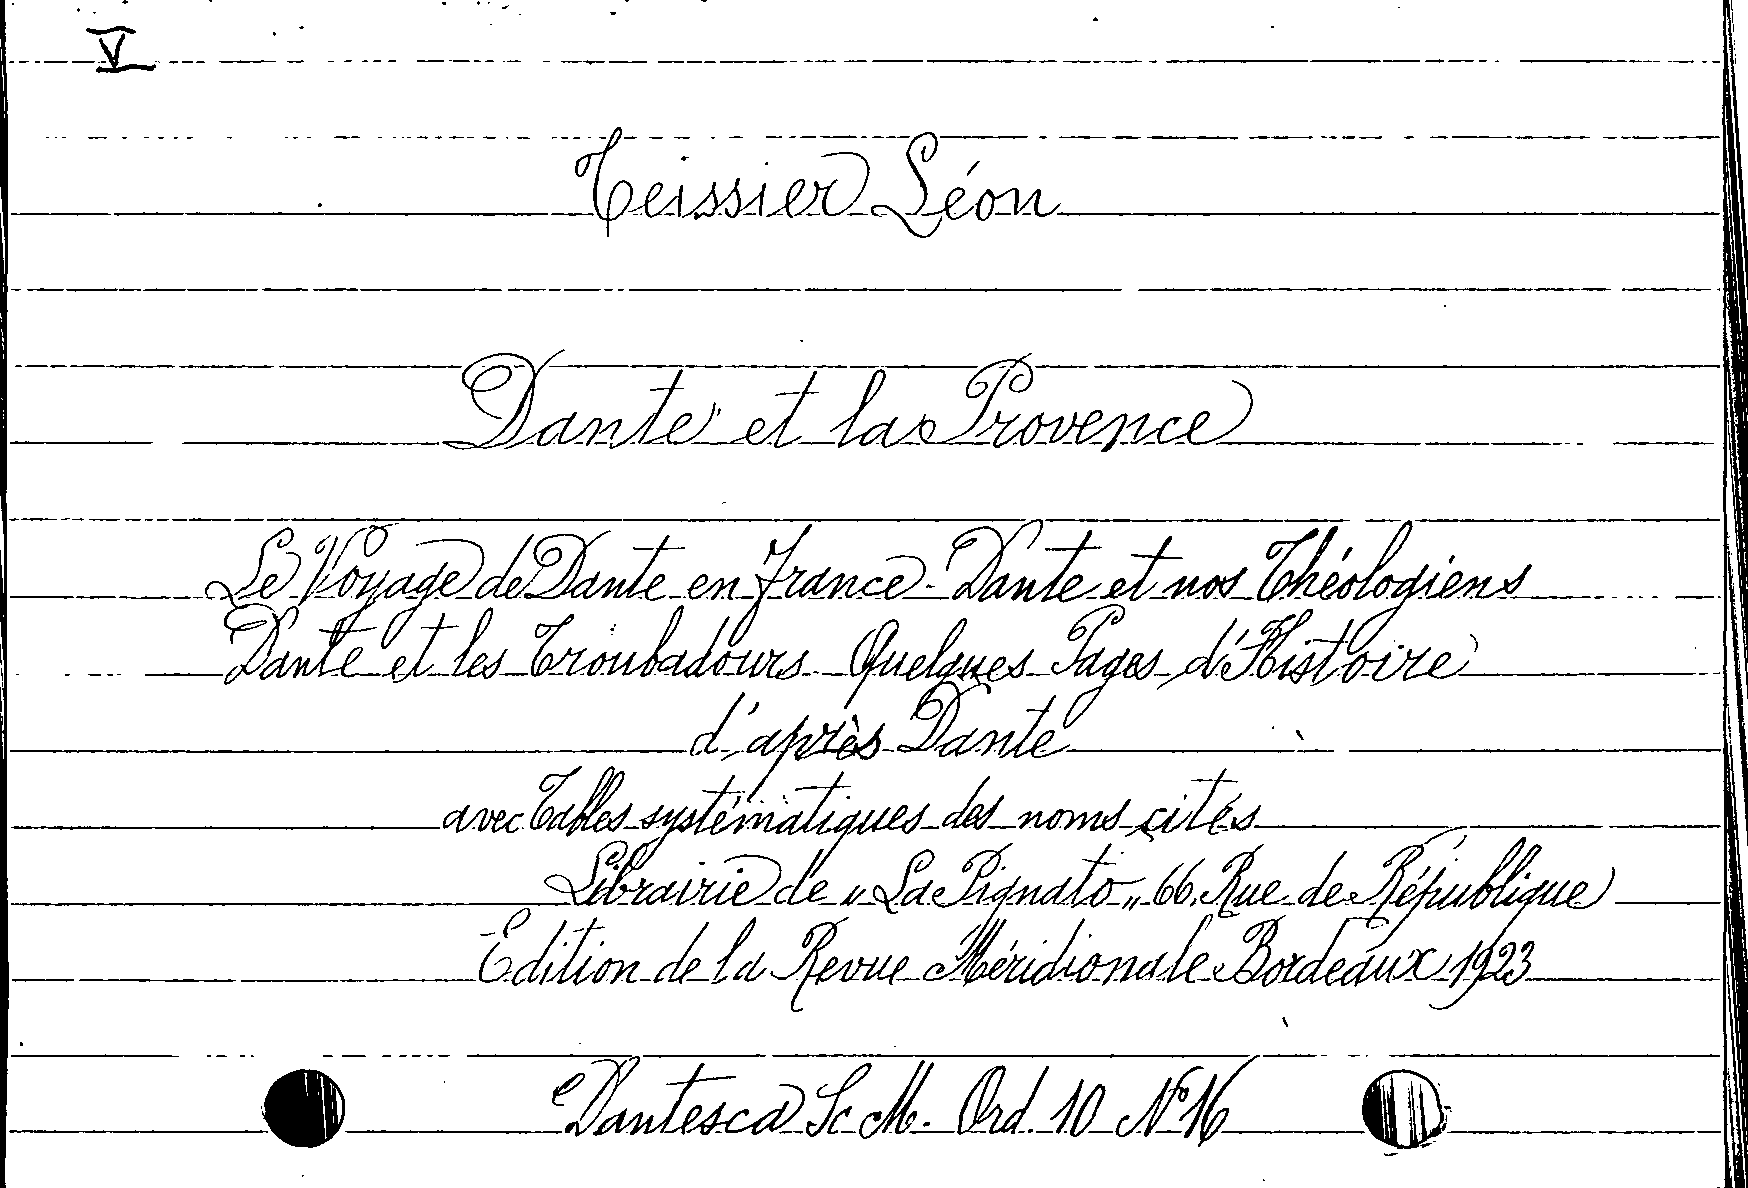 V
Teissier Léon
Dante et la Provence
Le Voyage de Dante en France - Dante et nos Théologiens
Dante et les Troubadours - Quelques Pages d'Histoire
d'après Dante
avec Tables systématiques des noms cités
Librairie de „La Pignato„ 66, Rue de République
Édition de la Revue Méridionale Bordeaux 1923
Dantesca Sc M. Ord. 10 Nº 16